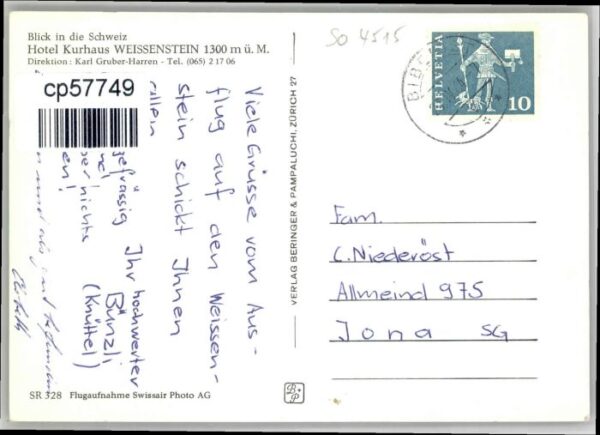 Blick in die Schweiz
Hotel Kurhaus WEISSENSTEIN 1300 m ü. M.
Direktion: Karl Gruber-Harren - Tel. (065) 2 17 06
cp57749
Viele Grüsse vom Aus-
flug auf den Weissen-
stein schickt Ihnen
allen
Ihr hochwerter
Bünzli
(Knüttel)
gefrässig
nichts
en!
SR 328 Flugaufnahme Swissair Photo AG
VERLAG BERINGER & PAMPALUCHI, ZÜRICH 27
B+P
SO 4515
HELVETIA
10
Fam.
C. Niederöst
Allmeind 975
Jona SG